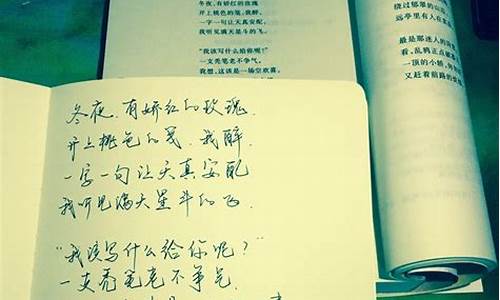 冬夜,有娇红的玫瑰
开上桃色的笺,我醉,
一字一句让天真安配,
我听见满天星斗的飞。
“我该写什么给你呢?”
一支秃笔老不争气。
我想,这该是一场空欢喜,
绕过郁翠的山
远亭里有人在
最是那迷人的
看,乱鸦正点破
一顶的小轿,
又赶着前路的
冬夜,有娇红的玫瑰.
开上桃色的笺.我醉.
一字一句让天真安配
我听见满天星斗的飞.
“我该写什么给你呢?”
一支秃笔老不争气.